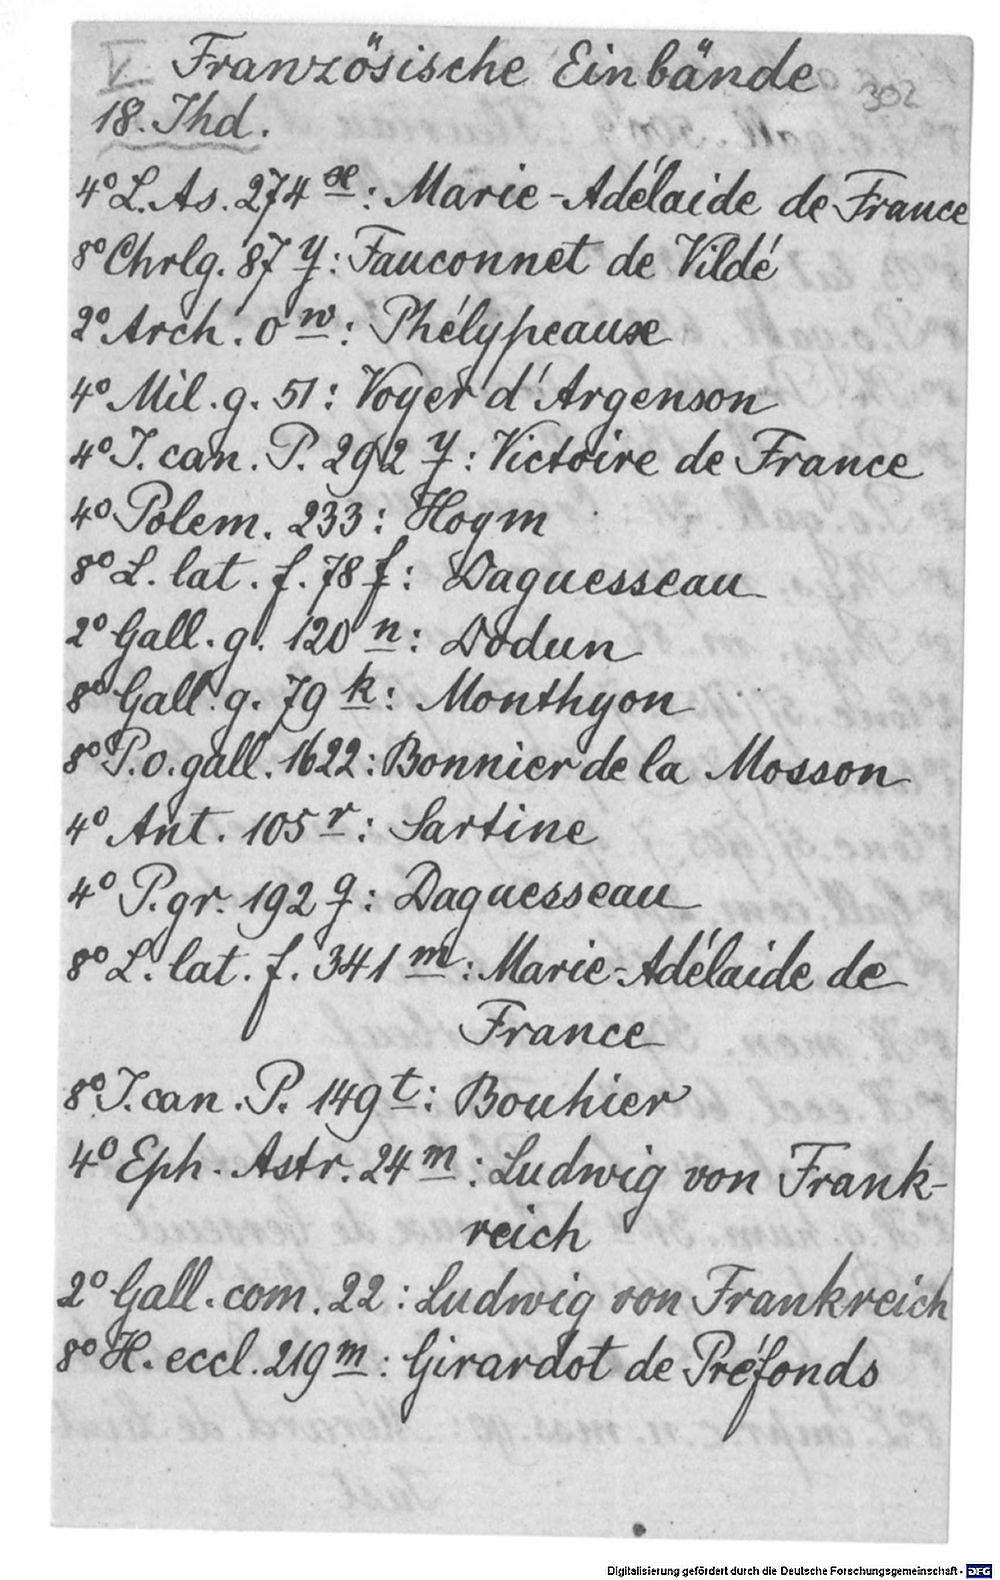 V. Französische Einbände
302
18. Jhd.
4° L. As. 274 x: Marie-Adélaide de France
8° Chrlg. 87 y: Fauconnet de Vildé
2° Arch. 0 w: Phélypeaux
4° Mil. g. 51: Voyer d'Argenson
4° J. can. P. 292 y: Victoire de France
4° Polem. 233: Hoym
8° L. lat. f. 78 f: Daguesseau
2° Gall. g. 120 n: Dodun
8° Gall. g. 79 k: Monthyon
8° P. o. gall. 1622: Bonnier de la Mosson
4° Ant. 105 r: Sartine
4° P. gr. 192 q: Daguesseau
8° L. lat. f. 341 m: Marie-Adélaide de
France
8° J. can. P. 149 t: Bouhier
4° Eph. Astr. 24 m: Ludwig von Frank-
reich
2° Gall. com. 22: Ludwig von Frankreich
8° H. eccl. 219 m: Girardot de Préfonds
Digitalisierung gefördert durch die Deutsche Forschungsgemeinschaft - DFG